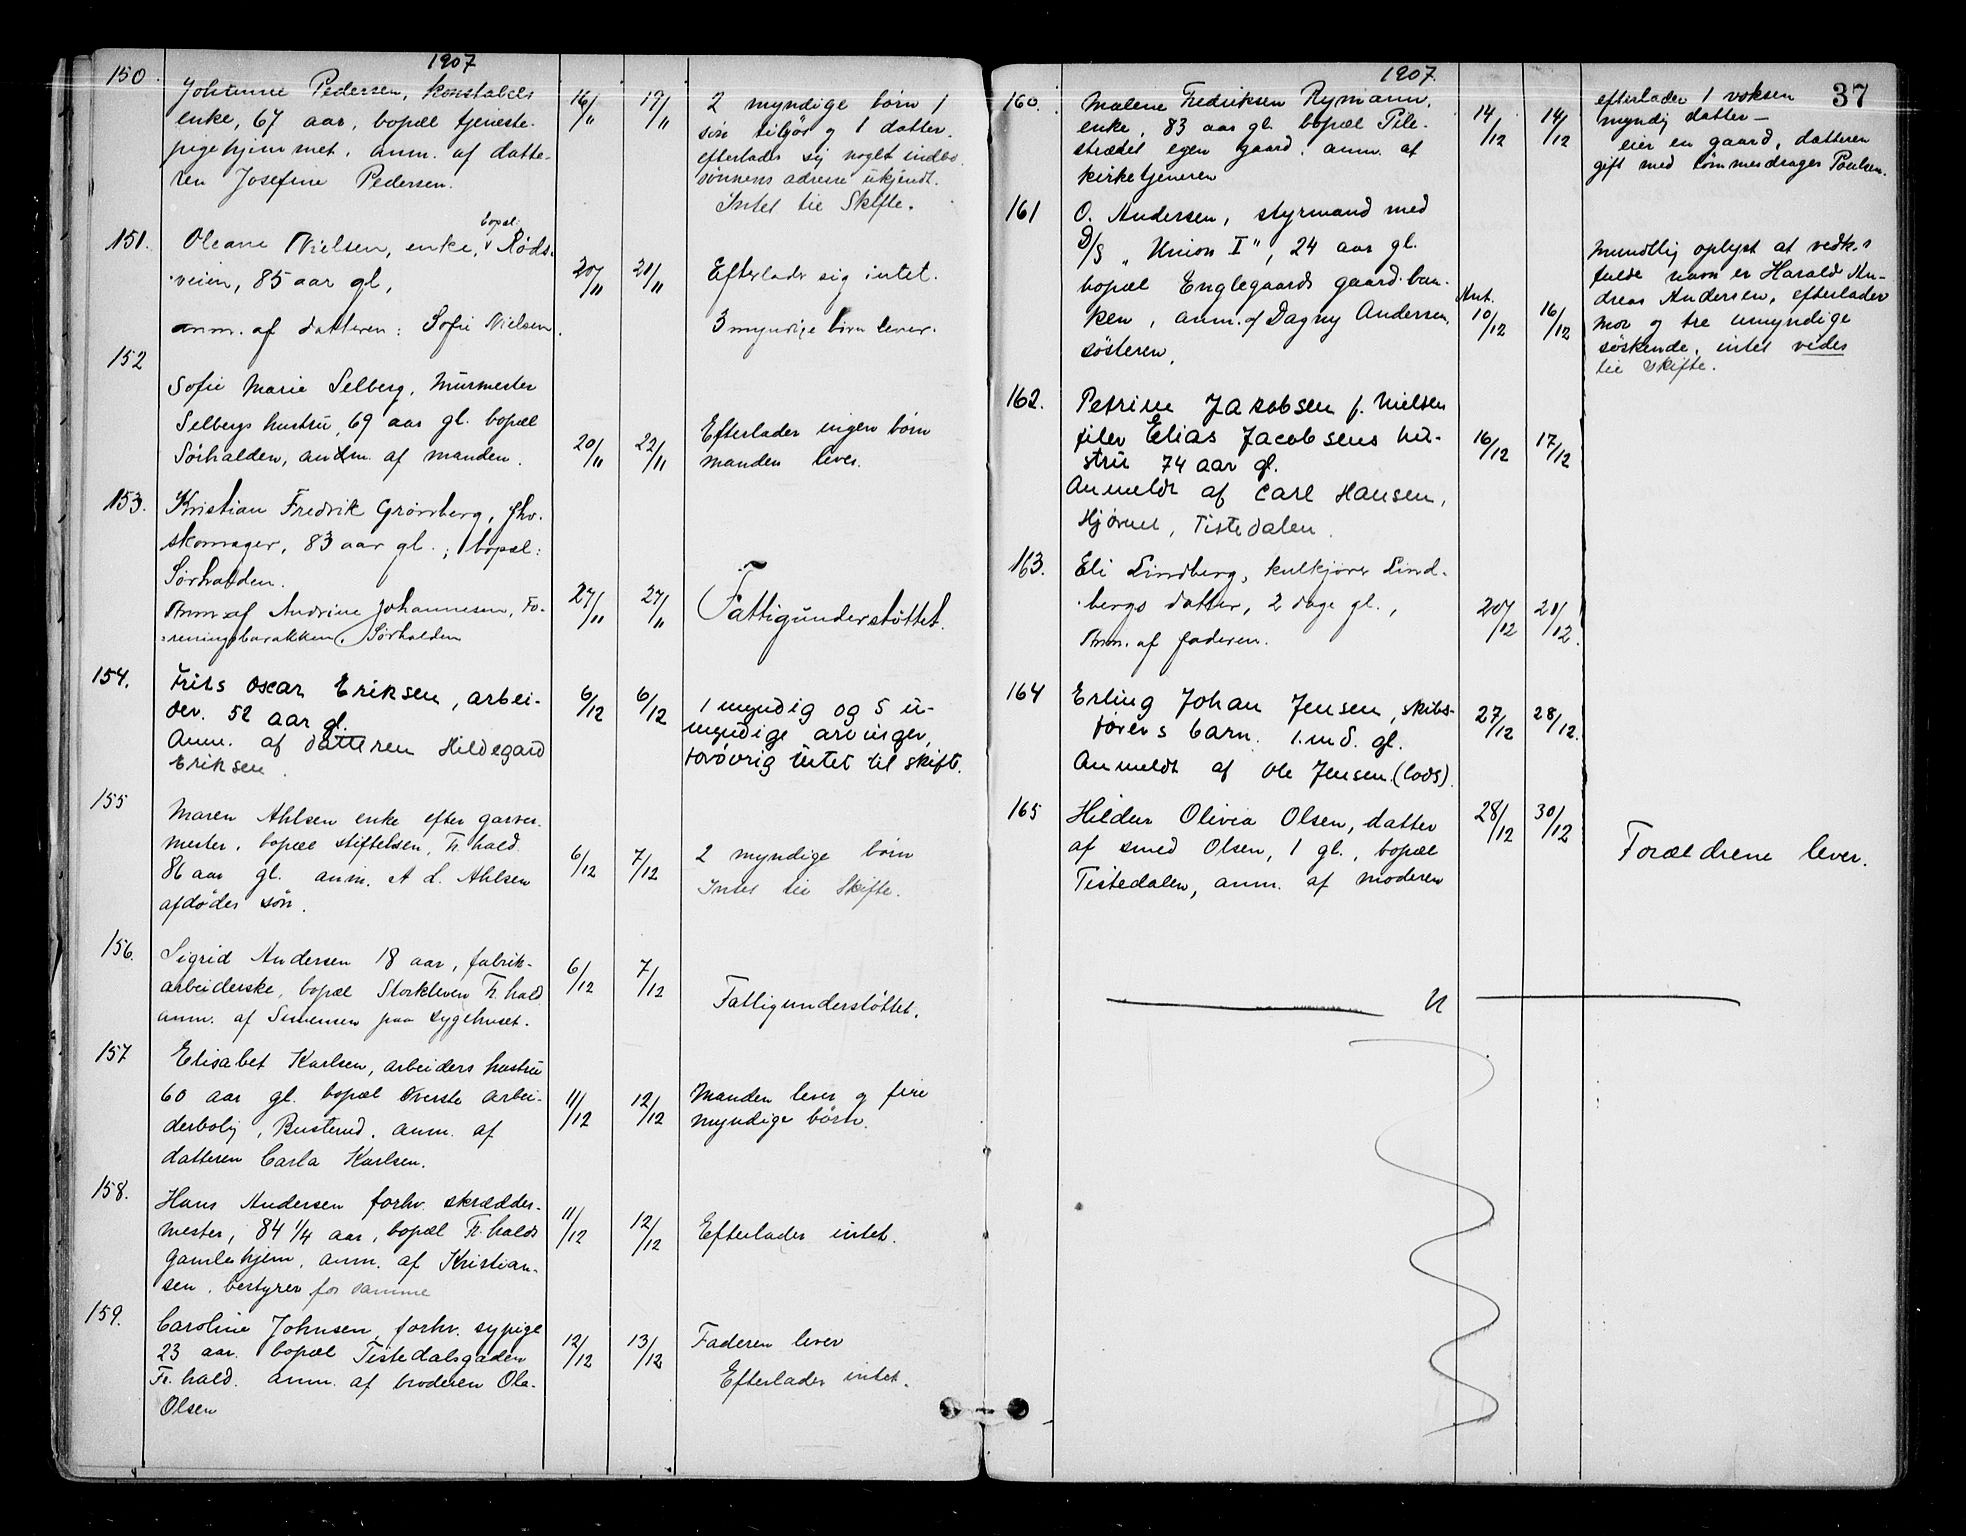 1907
150.
Johanne Pedersen, konstabels
enke, 67 aar, bopæl tjeneste-
pigehjemmet. anm. af datte-
ren Josefine Pedersen.
16/11 19/11
2 myndige børn 1
søn tilsjøs og 1 datter.
efterlader sig noget indbo.
sønnens adresse ukjendt.
Intet til Skifte.
151.
Oleane Nielsen, enke, bopæl Røds-
veien, 85 aar gl,
anm. af datteren: Sofie Nielsen.
20/11 21/11
Efterlader sig intet.
3 myndige børn lever.
152
Sofie Marie Selberg, Murmester
Selbergs hustru, 69 aar gl. bopæl
Sørhalden, anm. af manden.
20/11 22/11
Efterlader ingen børn
manden lever.
153.
Kristian Fredrik Grønberg, fhv.
skomager, 83 aar gl.; bopæl:
Sørhalden.
Anm. af Andrine Johannesen, Fo-
reningsbarakken, Sørhalden
27/11 27/11
Fattigunderstøttet.
154.
Frits Oscar Eriksen, arbei-
der. 52 aar gl.
Anm. af datteren Hildegard
Eriksen.
6/12 6/12
1 myndig og 5 u-
myndige arvinger,
forøvrig intet til skifte.
155
Maren Ahlsen enke efter garver-
mester, bopæl stiftelsen, Fr.hald.
86 aar gl. anm. A L. Ahlsen
afdødes søn.
6/12 7/12
2 myndige børn
Intet til Skifte.
156.
Sigrid Andersen 18 aar, fabrik-
arbeiderske, bopæl Storkleven Fr.hald
anm. af Simensen paa sygehuset.
6/12 7/12
Fattigunderstøttet.
157
Elisabet Karlsen, arbeiders hustru
60 aar gl. bopæl øverste arbei-
derbolig, Busterud. anm. af
datteren Carla Karlsen.
11/12 12/12
Manden lever og fire
myndige børn.
158.
Hans Andersen forhv. skrædder-
mester, 84 1/4 aar, bopæl Fr.halds
Gamlehjem, anm. af Kristian-
sen, bestyrer for samme
11/12 12/12
Efterlader intet.
159.
Caroline Johnsen, forhv. sypige
23 aar. bopæl Tistedalsgaden
Fr.hald. anm. af broderen Ole
Olsen
12/12 13/12
Faderen lever
Efterlader intet.
1907
37
160.
Malene Fredriksen Rymann,
enke, 83 aar gl. bopæl Pile-
strædet egen gaard. anm. af
kirketjeneren
14/12 14/12
efterlader 1 voksen
myndig datter –
eier en gaard, datteren
gift med tømmerdrager Paulsen.
161
O. Andersen, styrmand med
D/S "Union I", 24 aar gl.
bopæl Englegaards gaard. ban-
ken, anm. af Dagny Andersen,
søsteren,
Ant. 10/12 16/12
Mundtlig oplyst at vedk.s
fulde navn er Harald An-
dreas Andersen, efterlader
mor og tre umyndige
søskende, intet vides
til skifte.
162.
Petrine Jakobsen f. Nielsen
filer Elias Jacobsens hu-
stru 74 aar gl.
Anmeldt af Carl Hansen,
Hjørnet, Tistedalen.
16/12 17/12
163.
Eli Lindberg, kulkjører Lind-
bergs datter, 2 dage gl.,
Anm. af faderen.
20/12 21/12
164
Erling Johan Jensen, skibs-
førers barn. 1. md. gl.
Anmeldt af Ole Jensen. (lods).
27/12 28/12.
165
Hildur Olivia Olsen, datter
af smed Olsen, 1 gl., bopæl
Tistedalen, anm. af moderen
28/12 30/12
Forældrene lever.